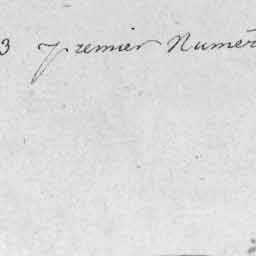 3 premier Numér